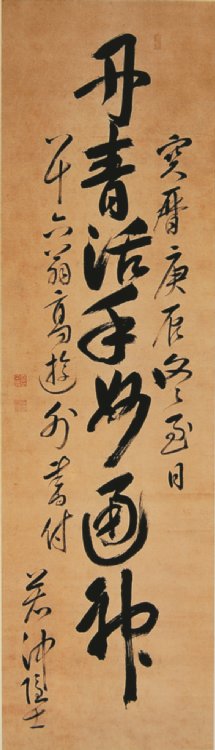 丹青活手妙通神
寶暦庚辰冬至日
八十六翁高遊外書付
若冲隠士